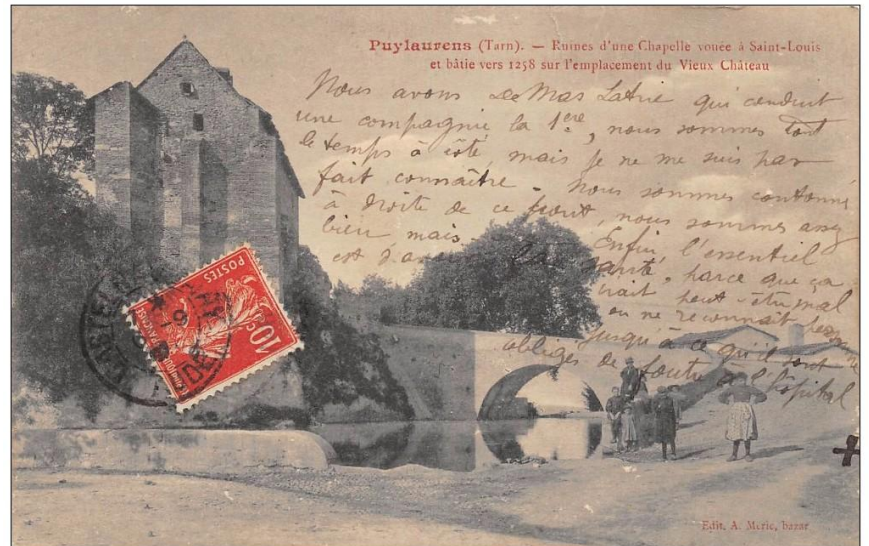 Puylaurens (Tarn). — Ruines d'une Chapelle vouée à Saint-Louis
et bâtie vers 1258 sur l'emplacement du Vieux Château
Nous avons De Mas Latrie qui conduit
une compagnie la 1ere, nous sommes tout
le temps à côté, mais je ne me suis pas
fait connaître. Nous sommes cantonné
à droite de ce pont, nous sommes assez
bien mais Enfin, l'essentiel
est d'avoir la santé, parce que ça
irait peut-être mal
on ne reconnait
jusqu'à ce qu'il sont
obligés de foutre à l'hôpital
POSTES
10c
Edit. A. Meric, bazar